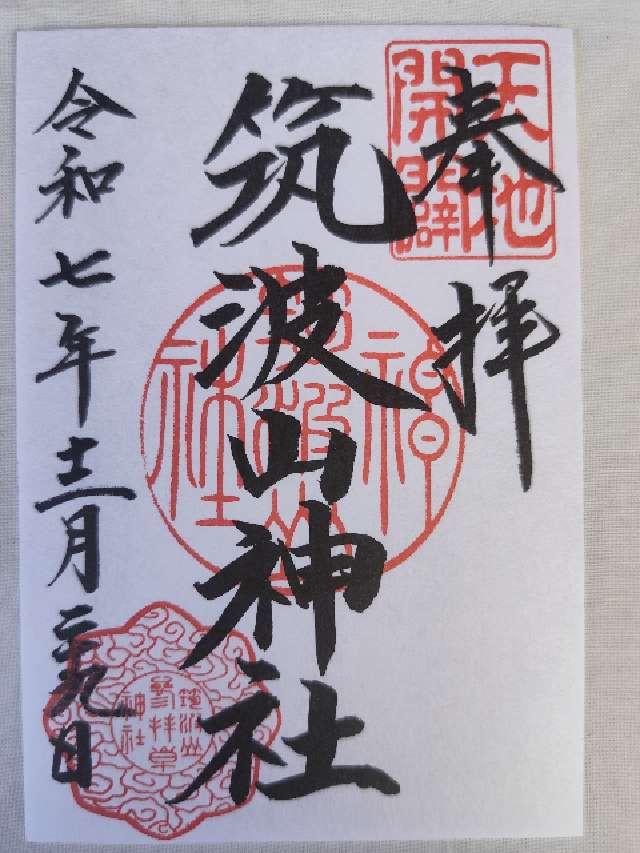 天地
開闢
奉拝
筑波山神社
筑波山
神社
令和七年十二月二十九日
筑波山
參拝章
神社